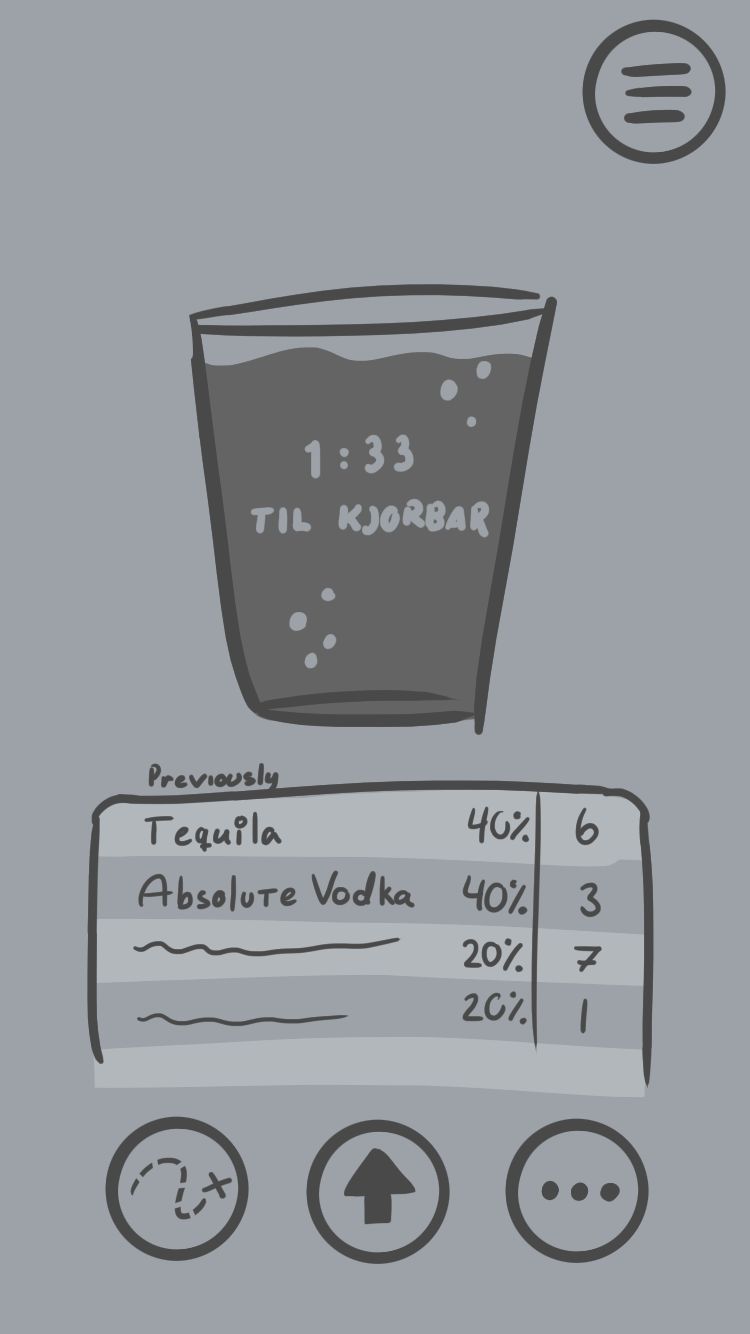 1:33
TIL KJØRBAR
Previously
Tequila 40% 6
Absolute Vodka 40% 3
20% 7
20% 1